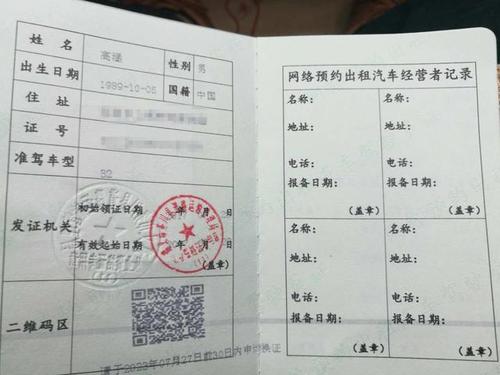 姓名
性别 男
出生日期 1989-10-06
国籍 中国
住址
证号
准驾车型 B2
初始领证日期 年 月 日
发证机关
有效起始日期 年 月 日
(盖章)
二维码区
请于2023年07月27日前30日内申请换证
网络预约出租汽车经营者记录
名称: 名称:
地址: 地址:
电话: 电话:
报备日期: 报备日期:
(盖章) (盖章)
名称: 名称:
地址: 地址:
电话: 电话:
报备日期: 报备日期:
(盖章) (盖章)